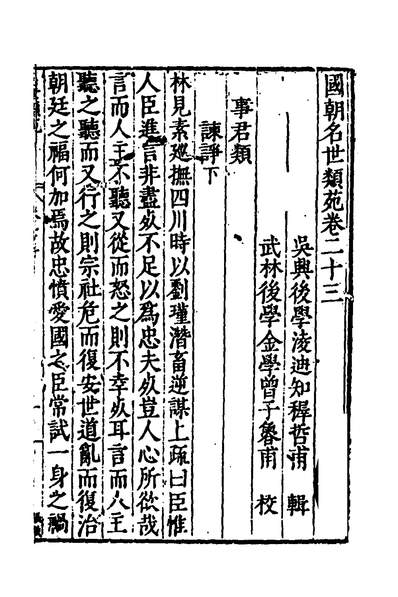 國朝名世類苑卷二十三
吳興後學凌迪知穉哲甫 輯
武林後學金學曾子魯甫 校
事君類
諫諍下
林見素廵撫四川時以劉瑾潛畜逆謀上疏曰臣惟
人臣進言非盡𭃡不足以為忠夫𭃡豈人心所欲哉
言而人主不聽又從而怒之則不幸𭃡耳言而人主
聽之聽而又行之則宗社危而復安世道亂而復治
朝廷之福何加焉故忠憤愛國之臣常試一身之禍